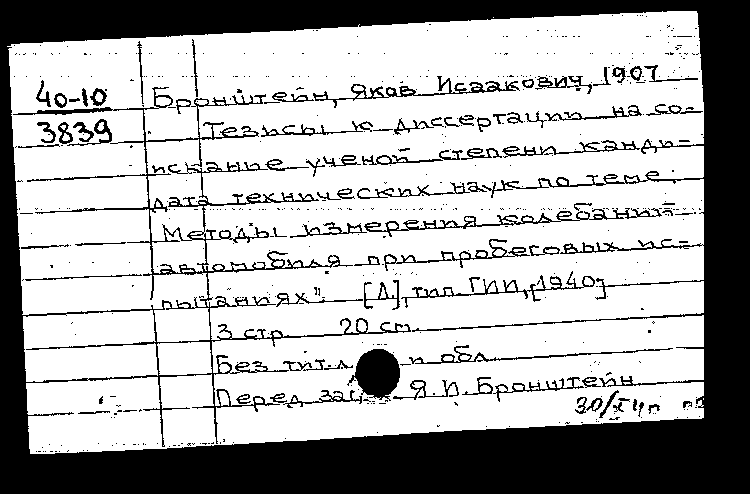 40-10
3839
Бронштейн, Яков Исаакович, 1907
Тезисы к диссертации на со-
искание ученой степени канди=
дата технических наук по теме:
Методы измерения колебаний
автомобиля при пробеговых ис=
пытаниях". [Л], тип. ГИИ, [1940]
3 стр. 20 см.
Без тит. л. и обл.
Перед Я.И. Бронштейн